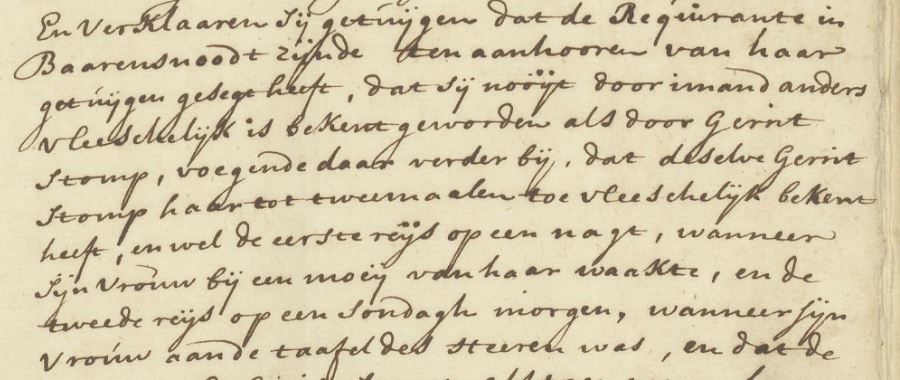 En verklaaren sij getúijgen dat de Requirante in
Baarensnoodt zijnde ten aanhooren van haar
getúijgen gesegt heeft, dat sij nooÿt door imand anders
vleeschelijk is bekent geworden als door Gerrit
Stomp, voegende daar verder bij, dat deselve Gerrit
Stomp haar tot tweemaalen toe vleeschelijk bekent
heeft, en wel de eerste reijs op een nagt, wanneer
sijn vroúw bij een moeij van haar waakte, en de
tweede reijs op een Sondagh morgen, wanneer sijn
vroúw aan de taafel des Heeren was, en dat de